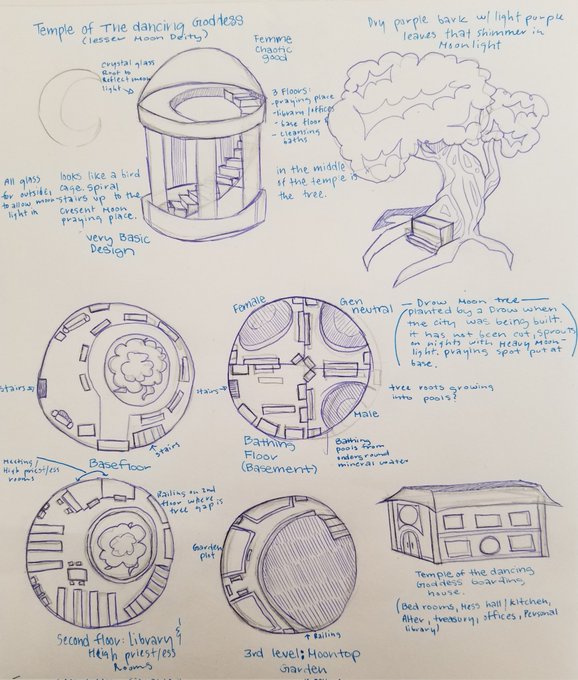 Temple of The dancing Goddess
(lesser Moon Deity)
Femme
Chaotic
good
Crystal glass
Roof to
Reflect moon
light
3 Floors:
- praying place
- library/offices
- base floor &
- cleansing
baths
All glass
for outside,
to allow moon
light in
looks like a bird
cage. Spiral
stairs up to the
Cresent Moon
praying place.
very Basic
Design
in the middle
of the temple is
the tree.
Dry purple bark w/ light purple
leaves that shimmer in
Moonlight
- Drow Moon tree -
planted by a Drow when
the city was being built.
it has not been cut, sprouts
on nights with Heavy Moon-
light. praying spot put at
base.
stairs
stairs
Basefloor
Female
Gen
neutral
stairs
Male
Bathing
Floor
(Basement)
Bathing
pools from
underground
mineral water
tree roots growing
into pools?
Meeting/
High priest/ess
rooms
Railing on 2nd
floor where
tree gap is
Second floor: library &
High priest/ess
Rooms
Garden
plot
Railing
3rd level; Moontop
Garden
Temple of the dancing
Goddess boarding
house.
(Bed rooms, Mess hall/kitchen,
Alter, treasury, offices, Personal
library)